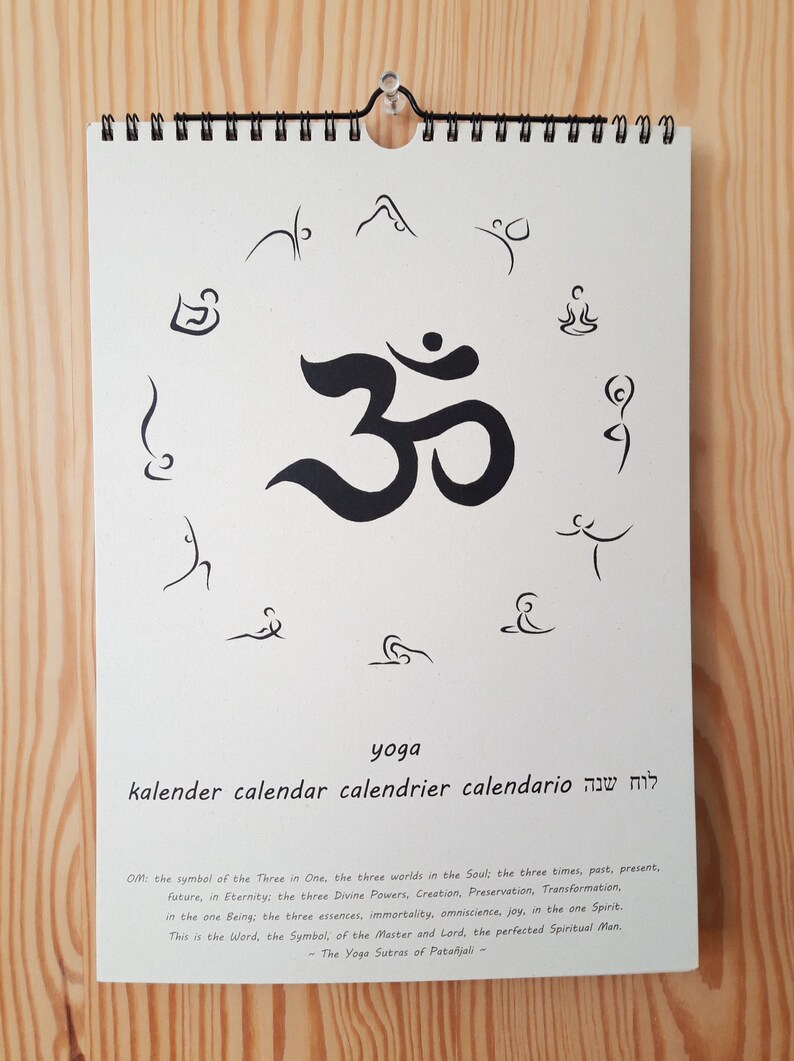 ॐ
yoga
kalender calendar calendrier calendario לוח שנה
OM: the symbol of the Three in One, the three worlds in the Soul; the three times, past, present,
future, in Eternity; the three Divine Powers, Creation, Preservation, Transformation,
in the one Being; the three essences, immortality, omniscience, joy, in the one Spirit.
This is the Word, the Symbol, of the Master and Lord, the perfected Spiritual Man.
~ The Yoga Sutras of Patañjali ~